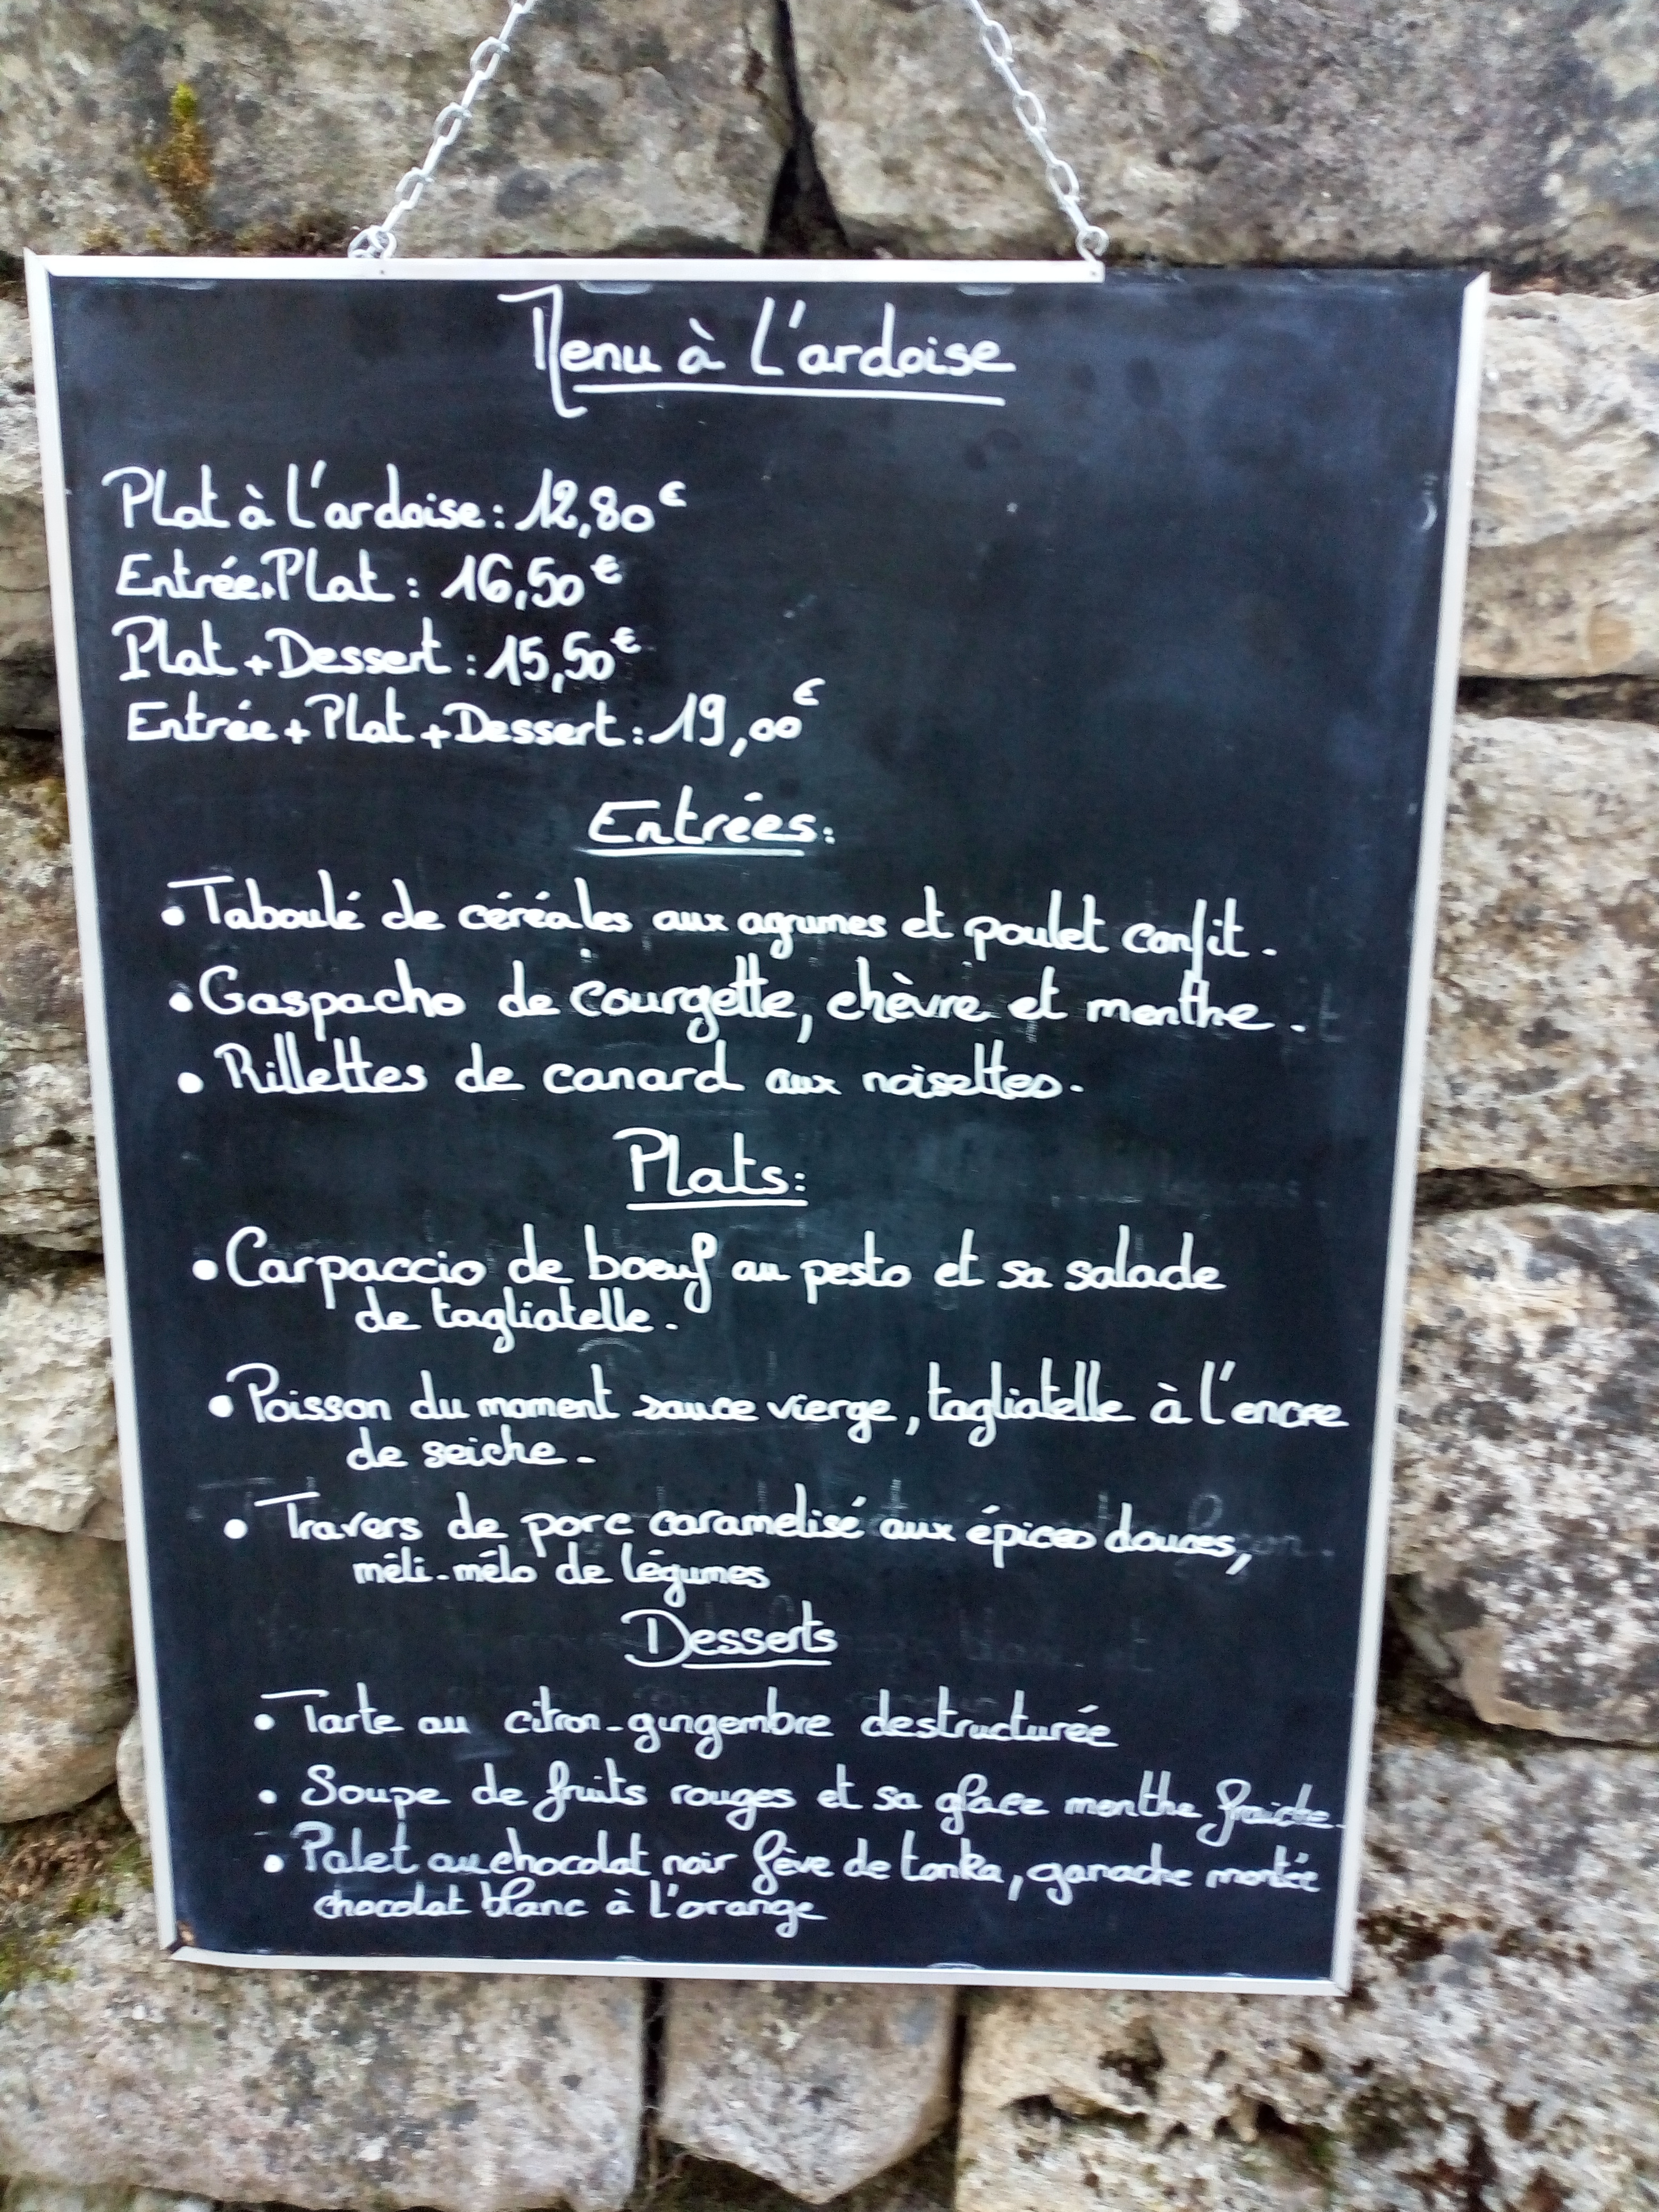 Menu à l'ardoise
Plat à l'ardoise : 12,80€
Entrée+Plat : 16,50€
Plat+Dessert : 15,50€
Entrée+Plat+Dessert : 19,00€
Entrées:
• Taboulé de céréales aux agrumes et poulet confit.
• Gaspacho de courgette, chèvre et menthe.
• Rillettes de canard aux noisettes.
Plats:
• Carpaccio de boeuf au pesto et sa salade
de tagliatelle.
• Poisson du moment sauce vierge, tagliatelle à l'encre
de seiche.
• Travers de porc caramelisé aux épices douces,
méli-mélo de légumes
Desserts
• Tarte au citron-gingembre destructurée
• Soupe de fruits rouges et sa glace menthe fraiche.
• Palet au chocolat noir fève de tonka, ganache montée
chocolat blanc à l'orange